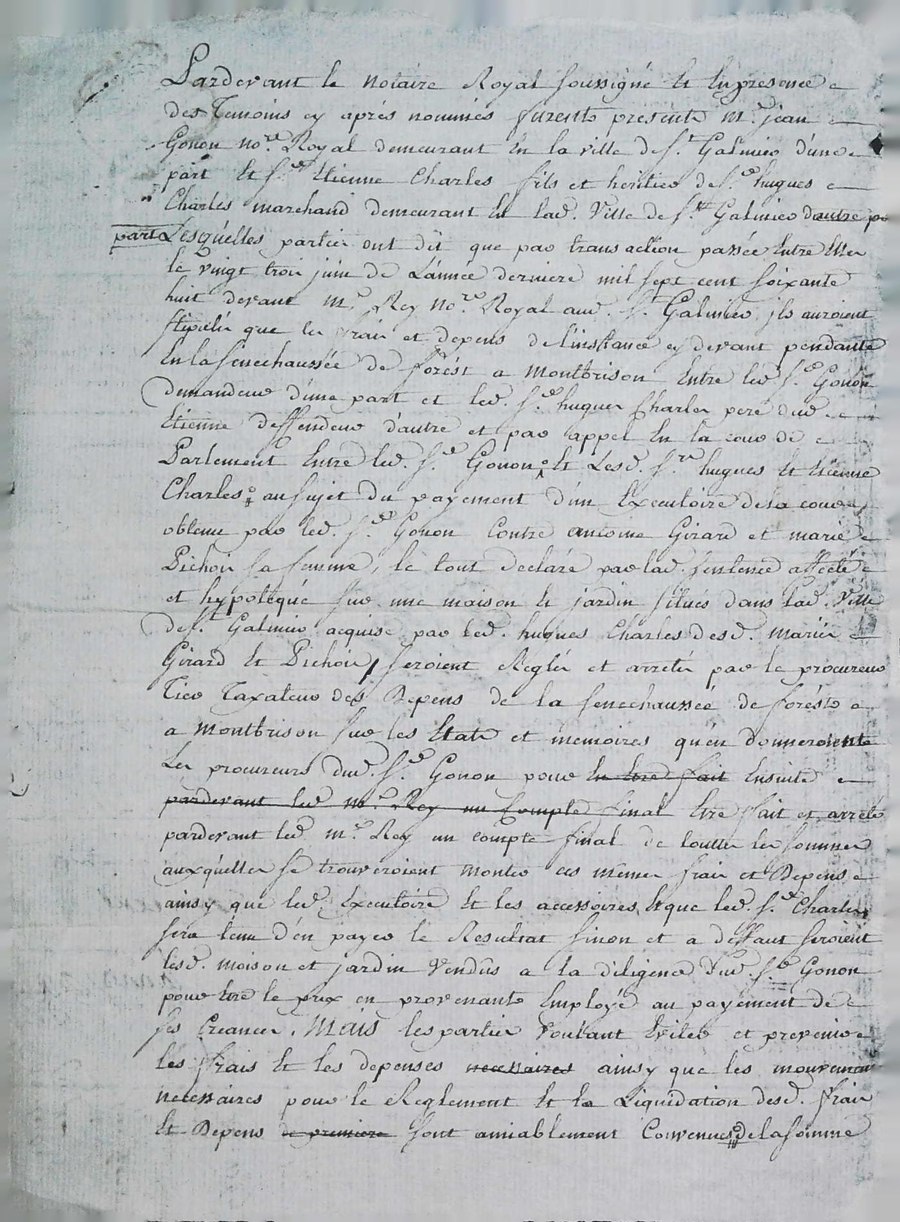 Pardevant le notaire Royal soussigné et en presence
des Temoins cy aprés nommés furents presents m.e jean
Gonon no.re Royal demeurant en la ville de S.t Galmier d'une
part et S.r Etienne Charles fils et heritier de S.r hugues
Charles marchand demeurant en lad. Ville de S.t Galmier d'autre
part Lesquelles parties ont dit que par transaction passée entre elles
le vingt trois juin de L'année derniere mil sept cent soixante
huit devant m.e Rey no.re Royal aud. S.t Galmier, ils auroient
stipulés que les frais et depens de l'instance cy devant pendante
En la senechaussée de forést a Montbrison Entre led. S.r Gonon
demandeur d'une part et led. S.r hugues Charles peré dud.
Etienne deffendeur d'autre et par appel En la cour de
Parlement Entre led. S.r Gonon et Lesd. S.rs hugues et Etienne
Charles au sujet du payement d'un Executoire de la cour
obtenu par led. S.r Gonon Contre antoine Girard et marie
Pichon sa femme, le tout declaré par lad. sentence affecté
et hypotéqué sur une maison et jardin situés dans lad. Ville
de S.t Galmier acquise par led. hugues Charles desd. Mariés
Girard et Pichon, seroient Reglés et arretés par le procureur
Tier Taxateur des Depens de la senechaussée de forésts
a Montbrison sur les Etats et memoires qu'en donneroients
Les procureurs dud. S.r Gonon pour en etre fait Ensuite
pardevant led. m.e Rey un Compte final Etre fait et arreté
pardevant led. m.e Rey un compte final de toutes les sommes
auxquelles se trouveroient montés ces mêmes frais et Depens
ainsy que led. Executoire et les accessoires, et que led. S.r Charles
sera tenu d'en payer le Resultat sinon et a deffaut seroient
lesd. maison et jardin Vendus a la diligence dud. S.r Gonon
pour etre le prix en provenants Employé au payement de
ses Creances. Mais les parties voulant Eviter et prevenir
les frais et les depenses necessaires ainsy que les mouvemens
necessaires pour le Reglement et la Liquidation desd. frais
et Depens de premiere sont amiablement Convenues de la somme